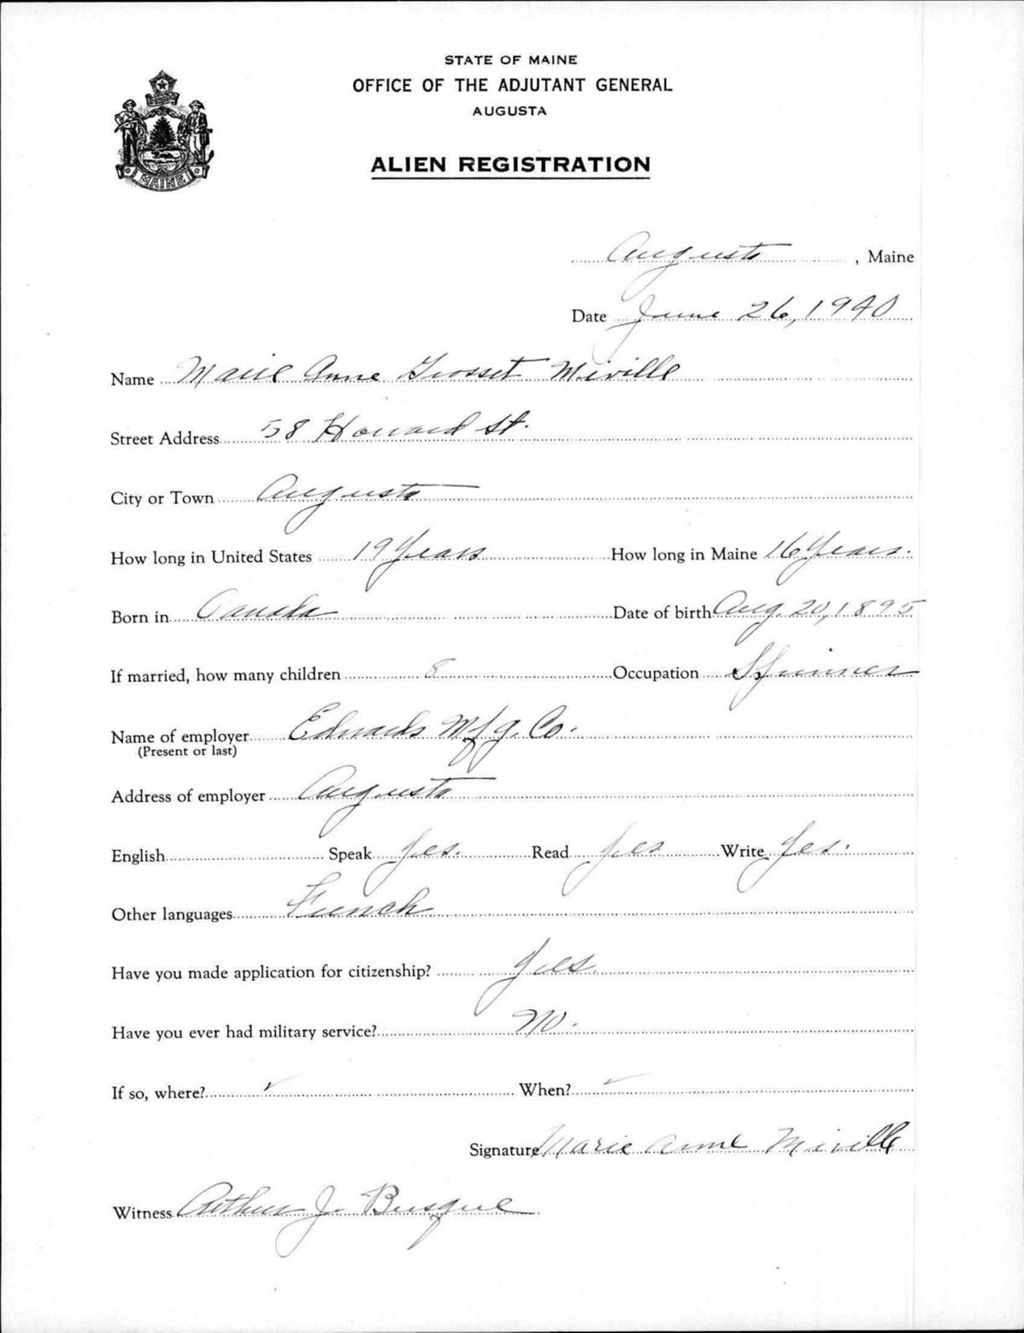 STATE OF MAINE
OFFICE OF THE ADJUTANT GENERAL
AUGUSTA
ALIEN REGISTRATION
MAINE
Augusta, Maine
Date June 26, 1940
Name Marie Anne Grosset Miville
Street Address 58 Howard St.
City or Town Augusta
How long in United States 19 Years How long in Maine 16 Years.
Born in Canada Date of birth Aug. 20, 1895
If married, how many children 8 Occupation Spinner
Name of employer Edwards Mfg. Co.
(Present or last)
Address of employer Augusta
English Speak Yes. Read Yes Write Yes.
Other languages French
Have you made application for citizenship? Yes.
Have you ever had military service? No.
If so, where? ✓ When? ✓
Signature Marie Anne Miville
Witness Arthur J. Busque